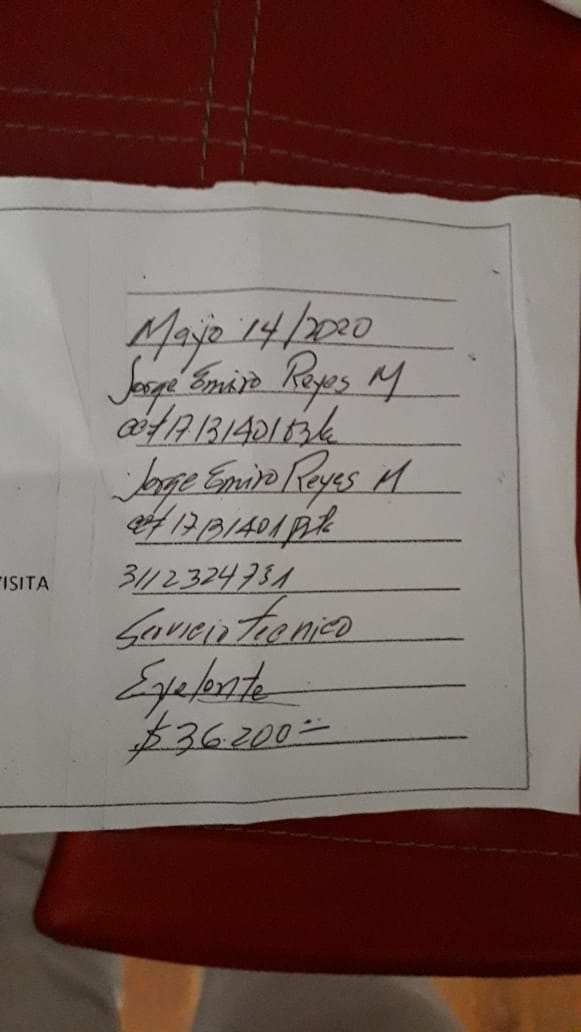 Mayo 14/2020
Jorge Emiro Reyes M
cc# 17.131401 Bta
Jorge Emiro Reyes M
cc# 17131401 Bta
VISITA
3112324731
Servicio Tecnico
Exelente
$36.200=